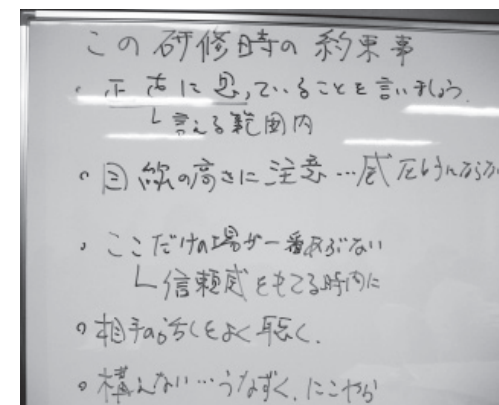 この研修時の約束事
・正直に思っていることを言いましょう。
└言える範囲内
・目線の高さに注意…
・ここだけの場が一番
└信頼感をもてる時間に
・相手の話しをよく聴く。
・構えない…うなずく、にこやか